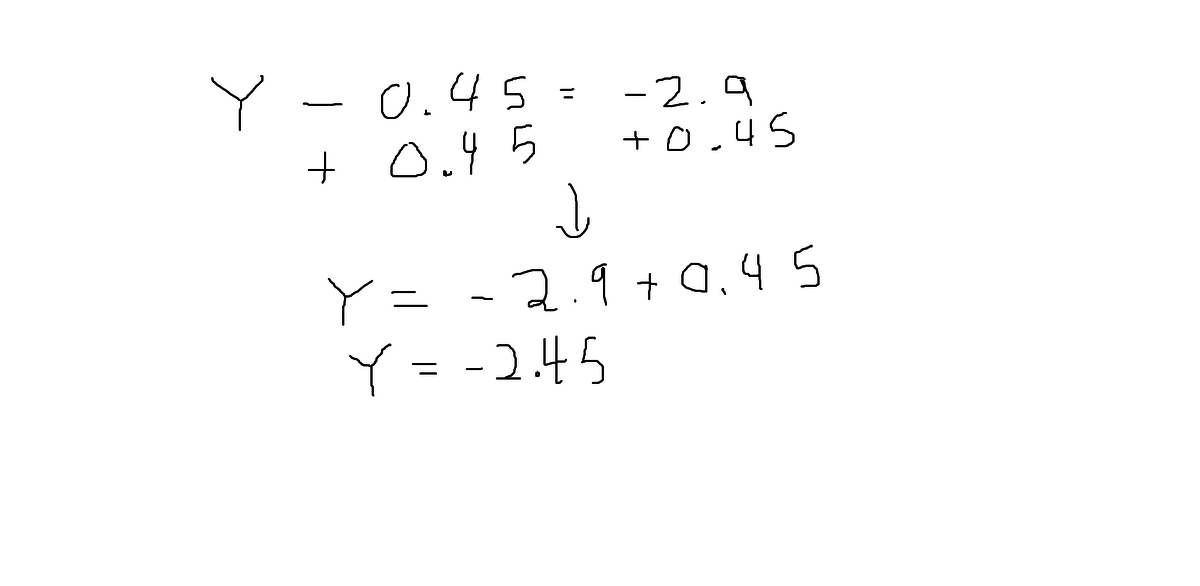 Y - 0.45 = -2.9
+ 0.45 +0.45
↓
Y = -2.9 + 0.45
Y = -2.45